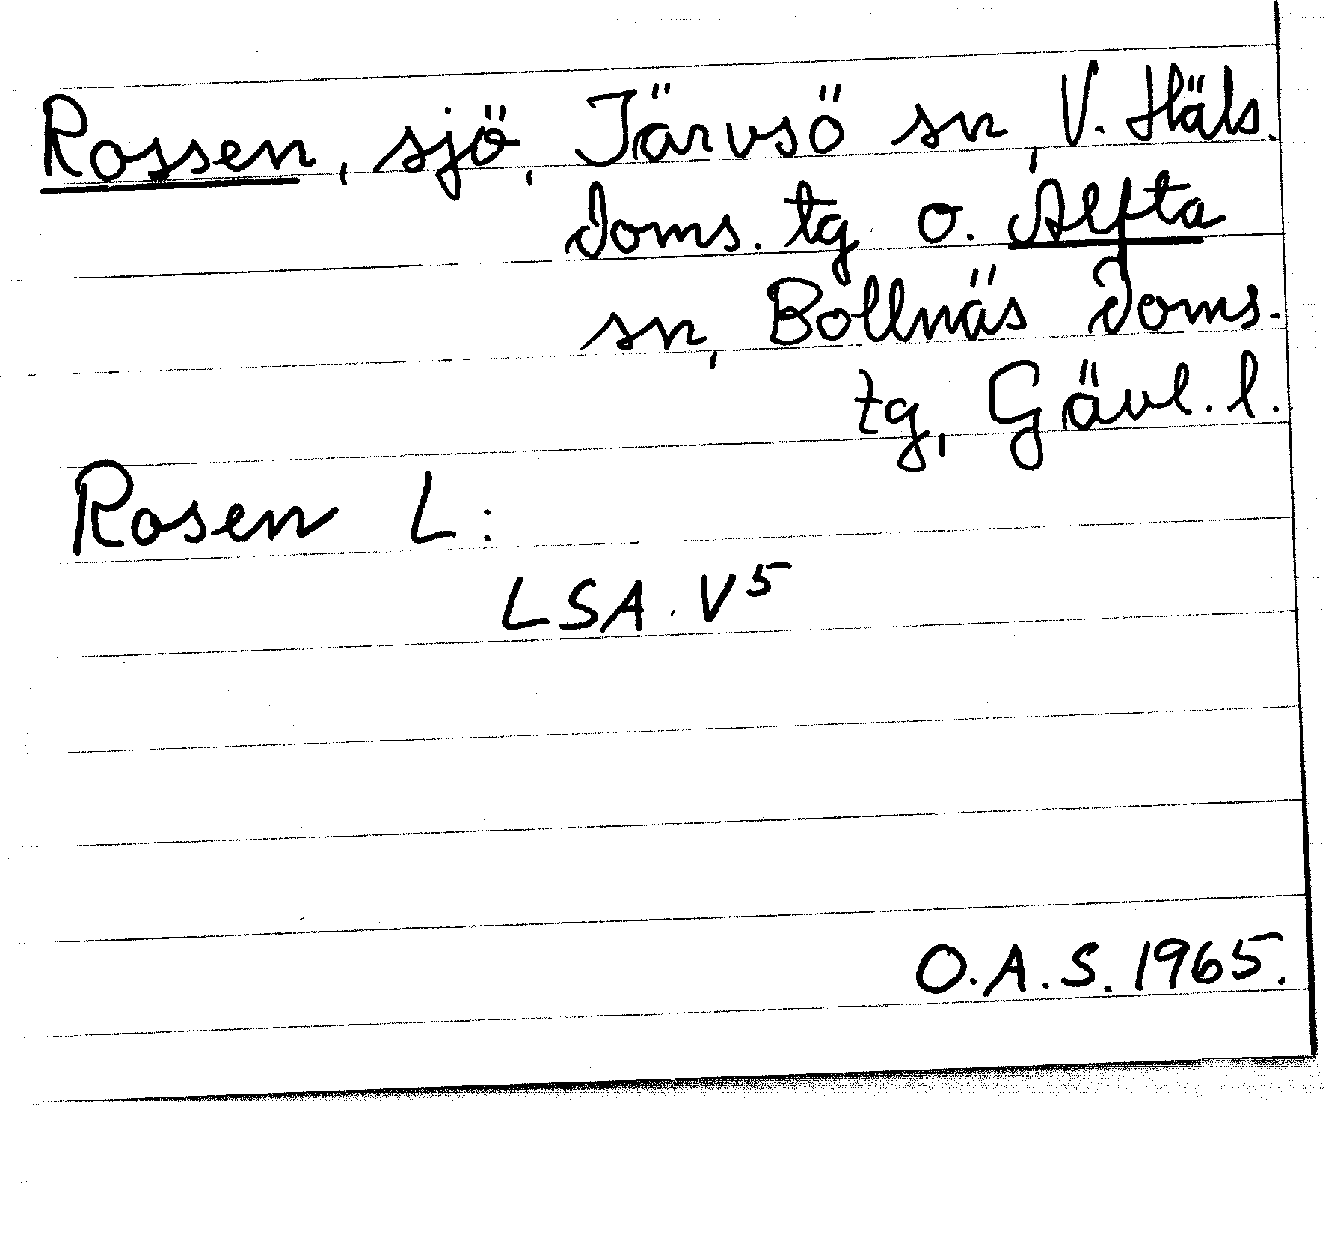 Rossen, sjö, Järvsö sn, V. Häls.
doms. tg o. Alfta
sn, Bollnäs doms.
tg, Gävl. l.
Rosen L:
LSA. V⁵
O.A.S. 1965.